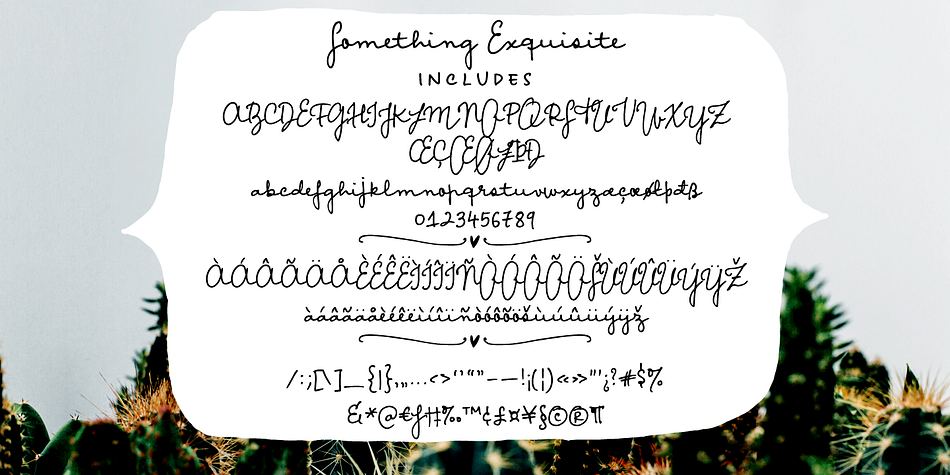 Something Exquisite
INCLUDES
ABCDEFGHIJKLMNOPQRSTUVWXYZ
ÆÇŒØŁÞĐ
abcdefghijklmnopqrstuvwxyzæçœøłþđß
0123456789
ÀÁÂÃÄÅÈÉÊËÌÍÎÏÑÒÓÔÕÖŠÙÚÛÜÝŸŽ
àáâãäåèéêëìíîïñòóôõöšùúûüýÿž
/:;[\]_{|},„…‹›‘’“”–—!¡(¦)«»"'¿?#$%
&*@€ƒ†‡‰™¢£¤¥§©®¶